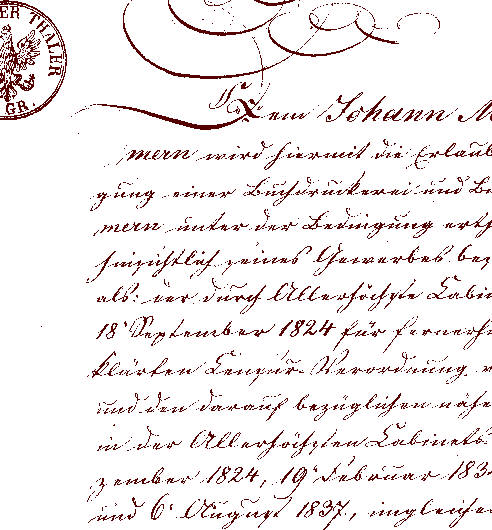 ER THALER
GR.
Dem Johann M
mern wird hiermit die Erlaub
gung einer Buchdruckerei und B
mern unter der Bedingung erth
hinsichtlich seines Gewerbes bez
als: der durch Allerhöchste Cabin
18' September 1824 für fernerhi
klärten Censur-Verordnung v
und den darauf bezüglichen nähe
in der Allerhöchsten Cabinets
zember 1824, 19' Februar 183
und 6' August 1837, imgleichen